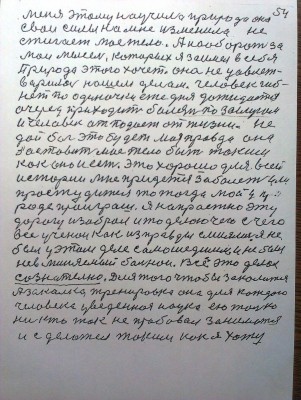 54
меня этому научила природа она
свои силы на мне изменила не
стигает мое тело. А наоборот за
мои мысли, которых я занел в себя
природа этого хочет она не удовлет-
варина нашем делам. Человек гиб-
нет по одиночки сие дня дожидается
очередь приходит болезнь по заслугам
и человек от подает от жизни. не
дай бог это будет моя правда она
заставит мое тело быт таким
как оно и есть. Это хорошо для всей
истории мне придется заболеть или
простудится то тогда мой в
роде проиграл. Я напрасно эту
дорогу избрал и то делаю чего с чего
все ученые как из правды смеялися не
был у этом деле самошедшим, и не был
невминяемый банной. Всё это делал
сознателно. Для того чтобы закалится
Азакалка тренировка она для каждого
человека уведенная наука ею толко
ни кто так не пробовал занимятся
и сделатся таким как я хожу